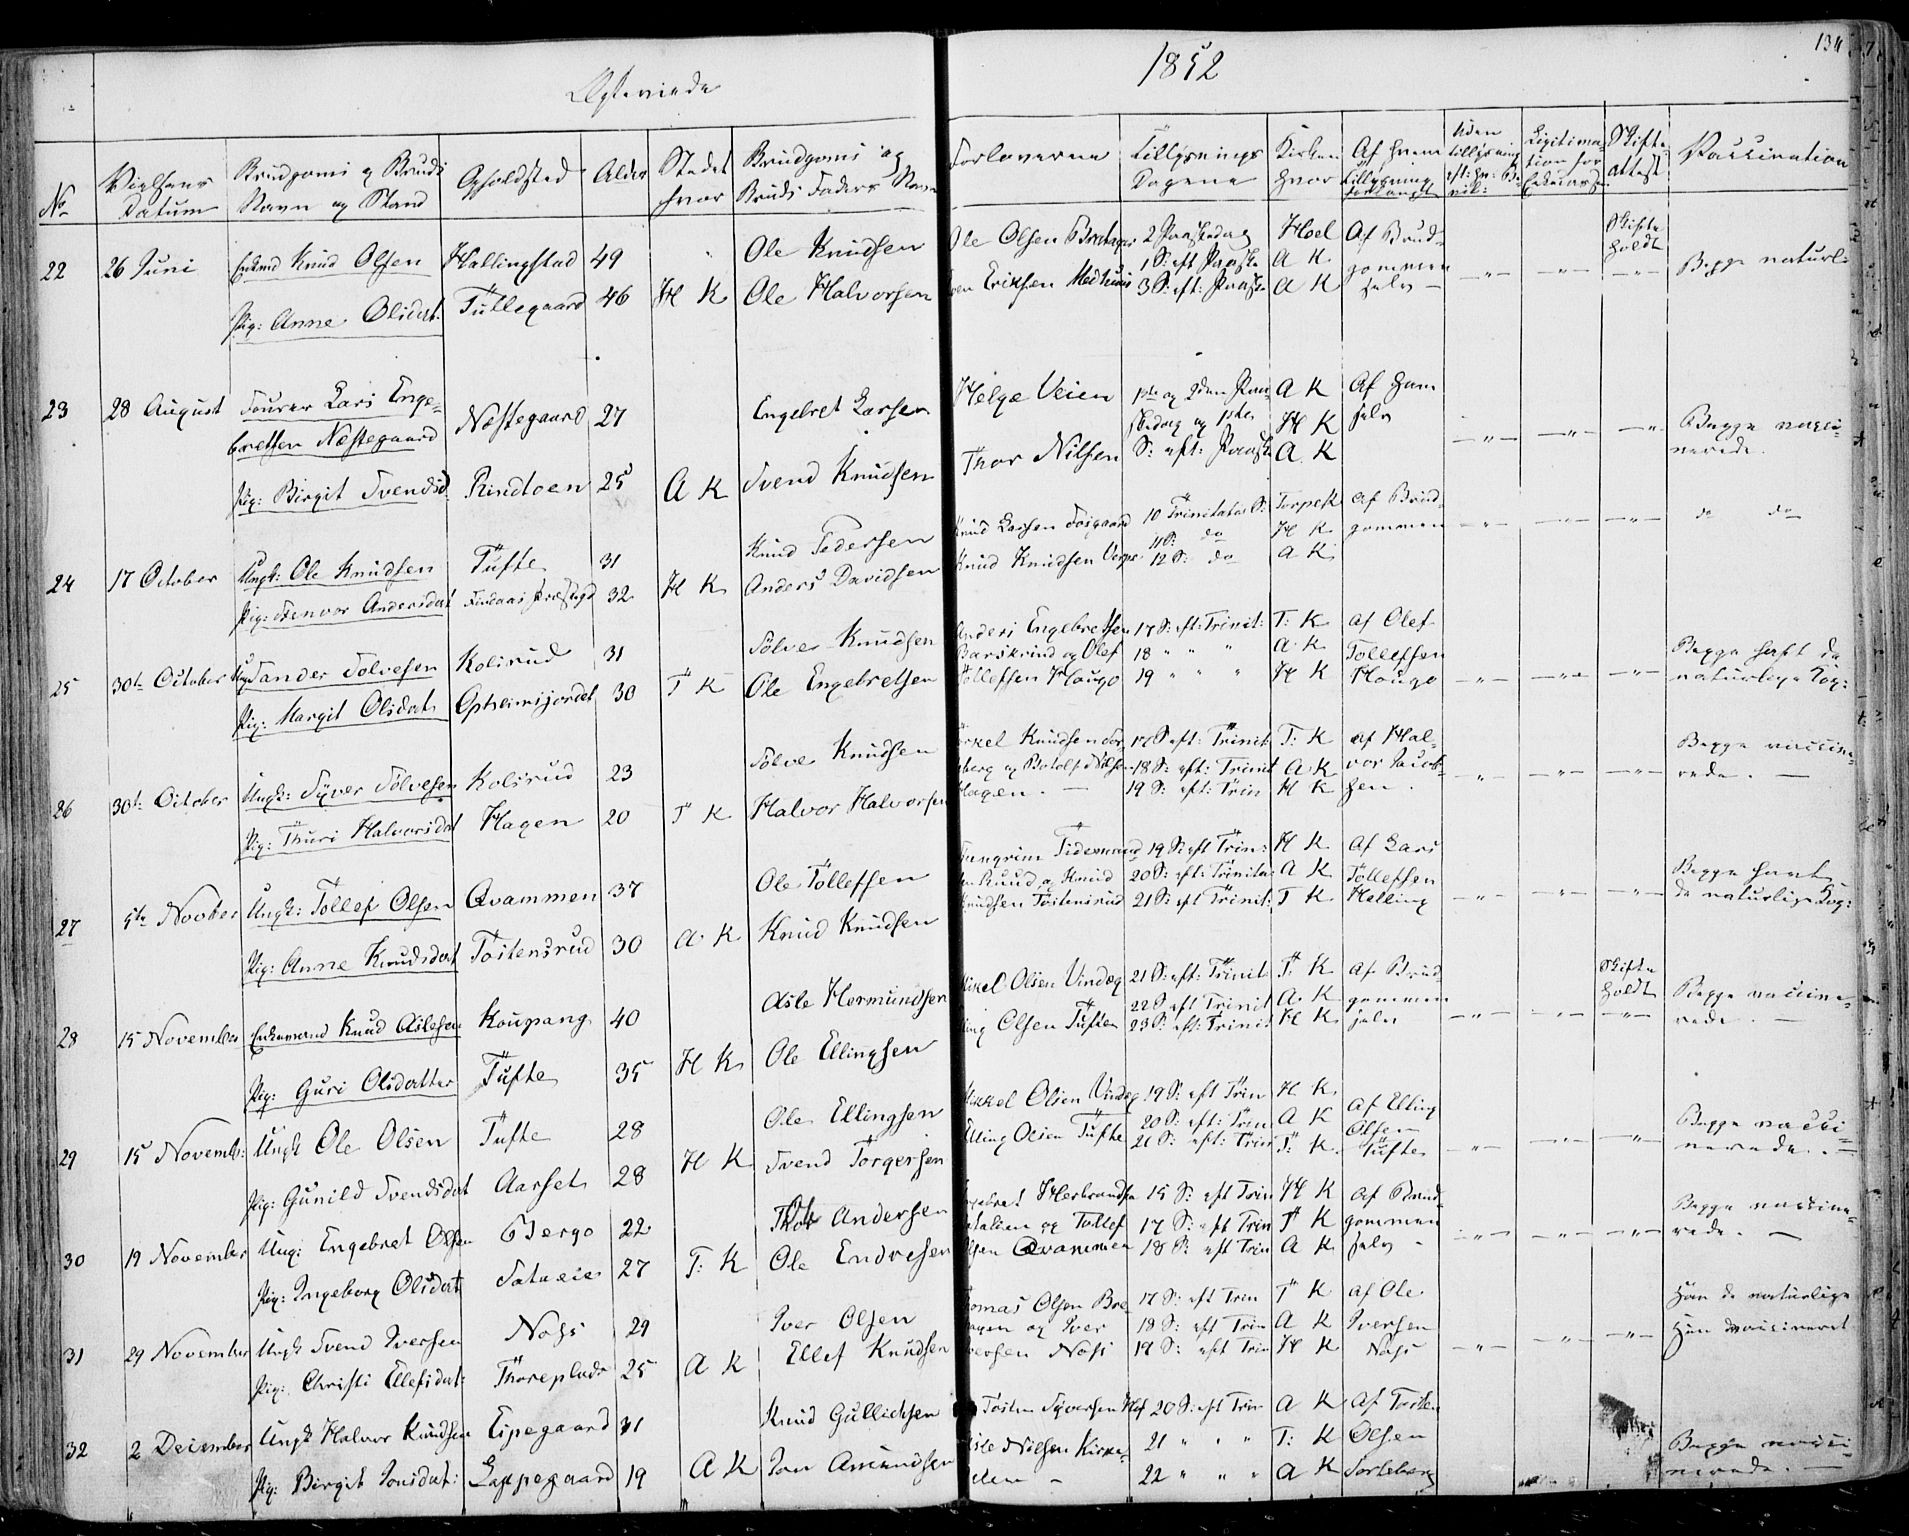 Ægteviede
1852
134
No
Vielsens Datum
Brudgoms og Bruds Navn og Stand
Opholdsted
Alder
Stedet hvor
Brudgoms og Bruds Faders Navn
Forloverne
Tillysnings Dagene
Kirken hvor
Af hvem Tillysning forlangt
Uden tillysning
Legitimation for
Skifte attest
Vaccination
22 26 Juni Enkemd Knud Olsen Hallingstad 49 Ole Knudsen Ole Olsen 2 Paaskedag Hoel Af Brud- Skifte holdt
Pig: Anne Olsdat. Tüllegaard 46 H K Ole Halvorsen Eriksen 1 S: eft Paaske A K gommen Begge naturl:
3 S: eft: Paaske A K selv
23 28 August Fourer Lars Enge- Næstegaard 27 Engebret Larsen Helge Veien 1ste og 2den Paa- A K Af ham
bretsen Næstegaard skedag og 1ste H K selv Begge vacci-
Pig: Birgit Svendsd. Rindtoen 25 A K Svend Knudsen Thor Nilsen S: eft: Paaske A K nerede.
24 17 October Ungk: Ole Knudsen Tüfte 31 Knud Pedersen Knud Larsen 10 Trinitatis S: Torpe K Af Brud- do do
11 S: do H K gommen
Pig: Andersdat 32 H K Anders Davidsen Knud Knudsen 12 S: do A K
25 30te October Sander Sølvesen Kolsrud 31 Sølve Knudsen Anders Engebretsen 17 S: eft: Trinit: T: K af Olef
Barskrind og Olef 18 " " " A K Tollefsen Begge haft de
Pig: Margit Olsdat Opheimsjordet 30 T K Ole Engebretsen Tollefsen Haugo 19 " " " H K Haugo naturlige Kop:
26 30te October Ungk: Syver Sølvesen Kolsrud 23 Sølve Knudsen Knudsen 17 S: eft: Trinit T: K af Hal- Begge vaccine-
18 S: eft: Trinit A K vor Jacob- rede.
Pig: Thuri Halvorsdat Hagen 20 T K Halvor Halvorsen Hagen. 19 S: eft: Trin H K sen.
27 5te Novber Ungk: Tollef Olsen Qvammen 37 Ole Tollefsen Tidemand 19 S: eft Trin: H K Af Lars
Ruud og Knud 20 S: eft: Trinita A K Tollefsen Begge havt
Pig: Anne Knudsdat Tostensrud 30 A K Knud Knudsen Knudsen Tostensrud 21 S: eft Trinit: T K Helling de naturlige Kop:
28 15 November Enkemand Knud Aslesen Koupang 40 Asle Hermundsen Mikkel Olsen Vindeg 21 S: eft: Trinit T: K af Brud Skifte holdt
22 S: eft Trinit A. K gommen Begge vaccine-
Pig: Guri Olsdatter Tufte 35 H K Ole Ellingsen Olsen Tüften 23 S: eft: Trinit H K selv rede.
29 15 Novemb: Ungk Ole Olsen Tufte 28 Ole Ellingsen Mikkel Olsen Vindeg 19 S: eft Trin H K
Elling Olsen Tufte 20 S: eft: Trin A K af Elling Olsen Begge vacci-
Pig: Gunild Svendsdat Aarset 28 H K Svend Torgersen 21 S: eft: Trin T: K. Tüfte nerede.
30 19 November Ung: Engebret Olsen Bergo 22 Ole Andersen Engebret Herbrandsen 15 S: eft Trin H K af Brud- Begge vaccine-
og Tollef 17 S: eft Trin T K gommen rede.
Pig: Ingeborg Olsdat 27 T: K Ole Endresen Olsen Qvammen 18 S: eft Trin A K selv
31 29 November Ungk Svend Iversen Noss 29 Iver Olsen Thomas Olsen Bre 17 S: eft Trin T K af Ole Han de naturlige
og Iver 18 S: eft Trin A K Iversen Hun vaccineret
Pig: Christi Ellefsdat: Thoreplads 25 A K Ellef Knudsen Iversen Noss 19 S: eft Trin H K Noss
32 2 December Ungk Halvor Knudsen Eipegaard 31 Knud Gullichsen 20 S: eft Trin A K Af Tosten
Nilsen 21 " " " T: K Olsen Begge vacci-
Pig: Birgit Jonsdat: 19 A K Jon Amundsen 22 " " " A K nerede.